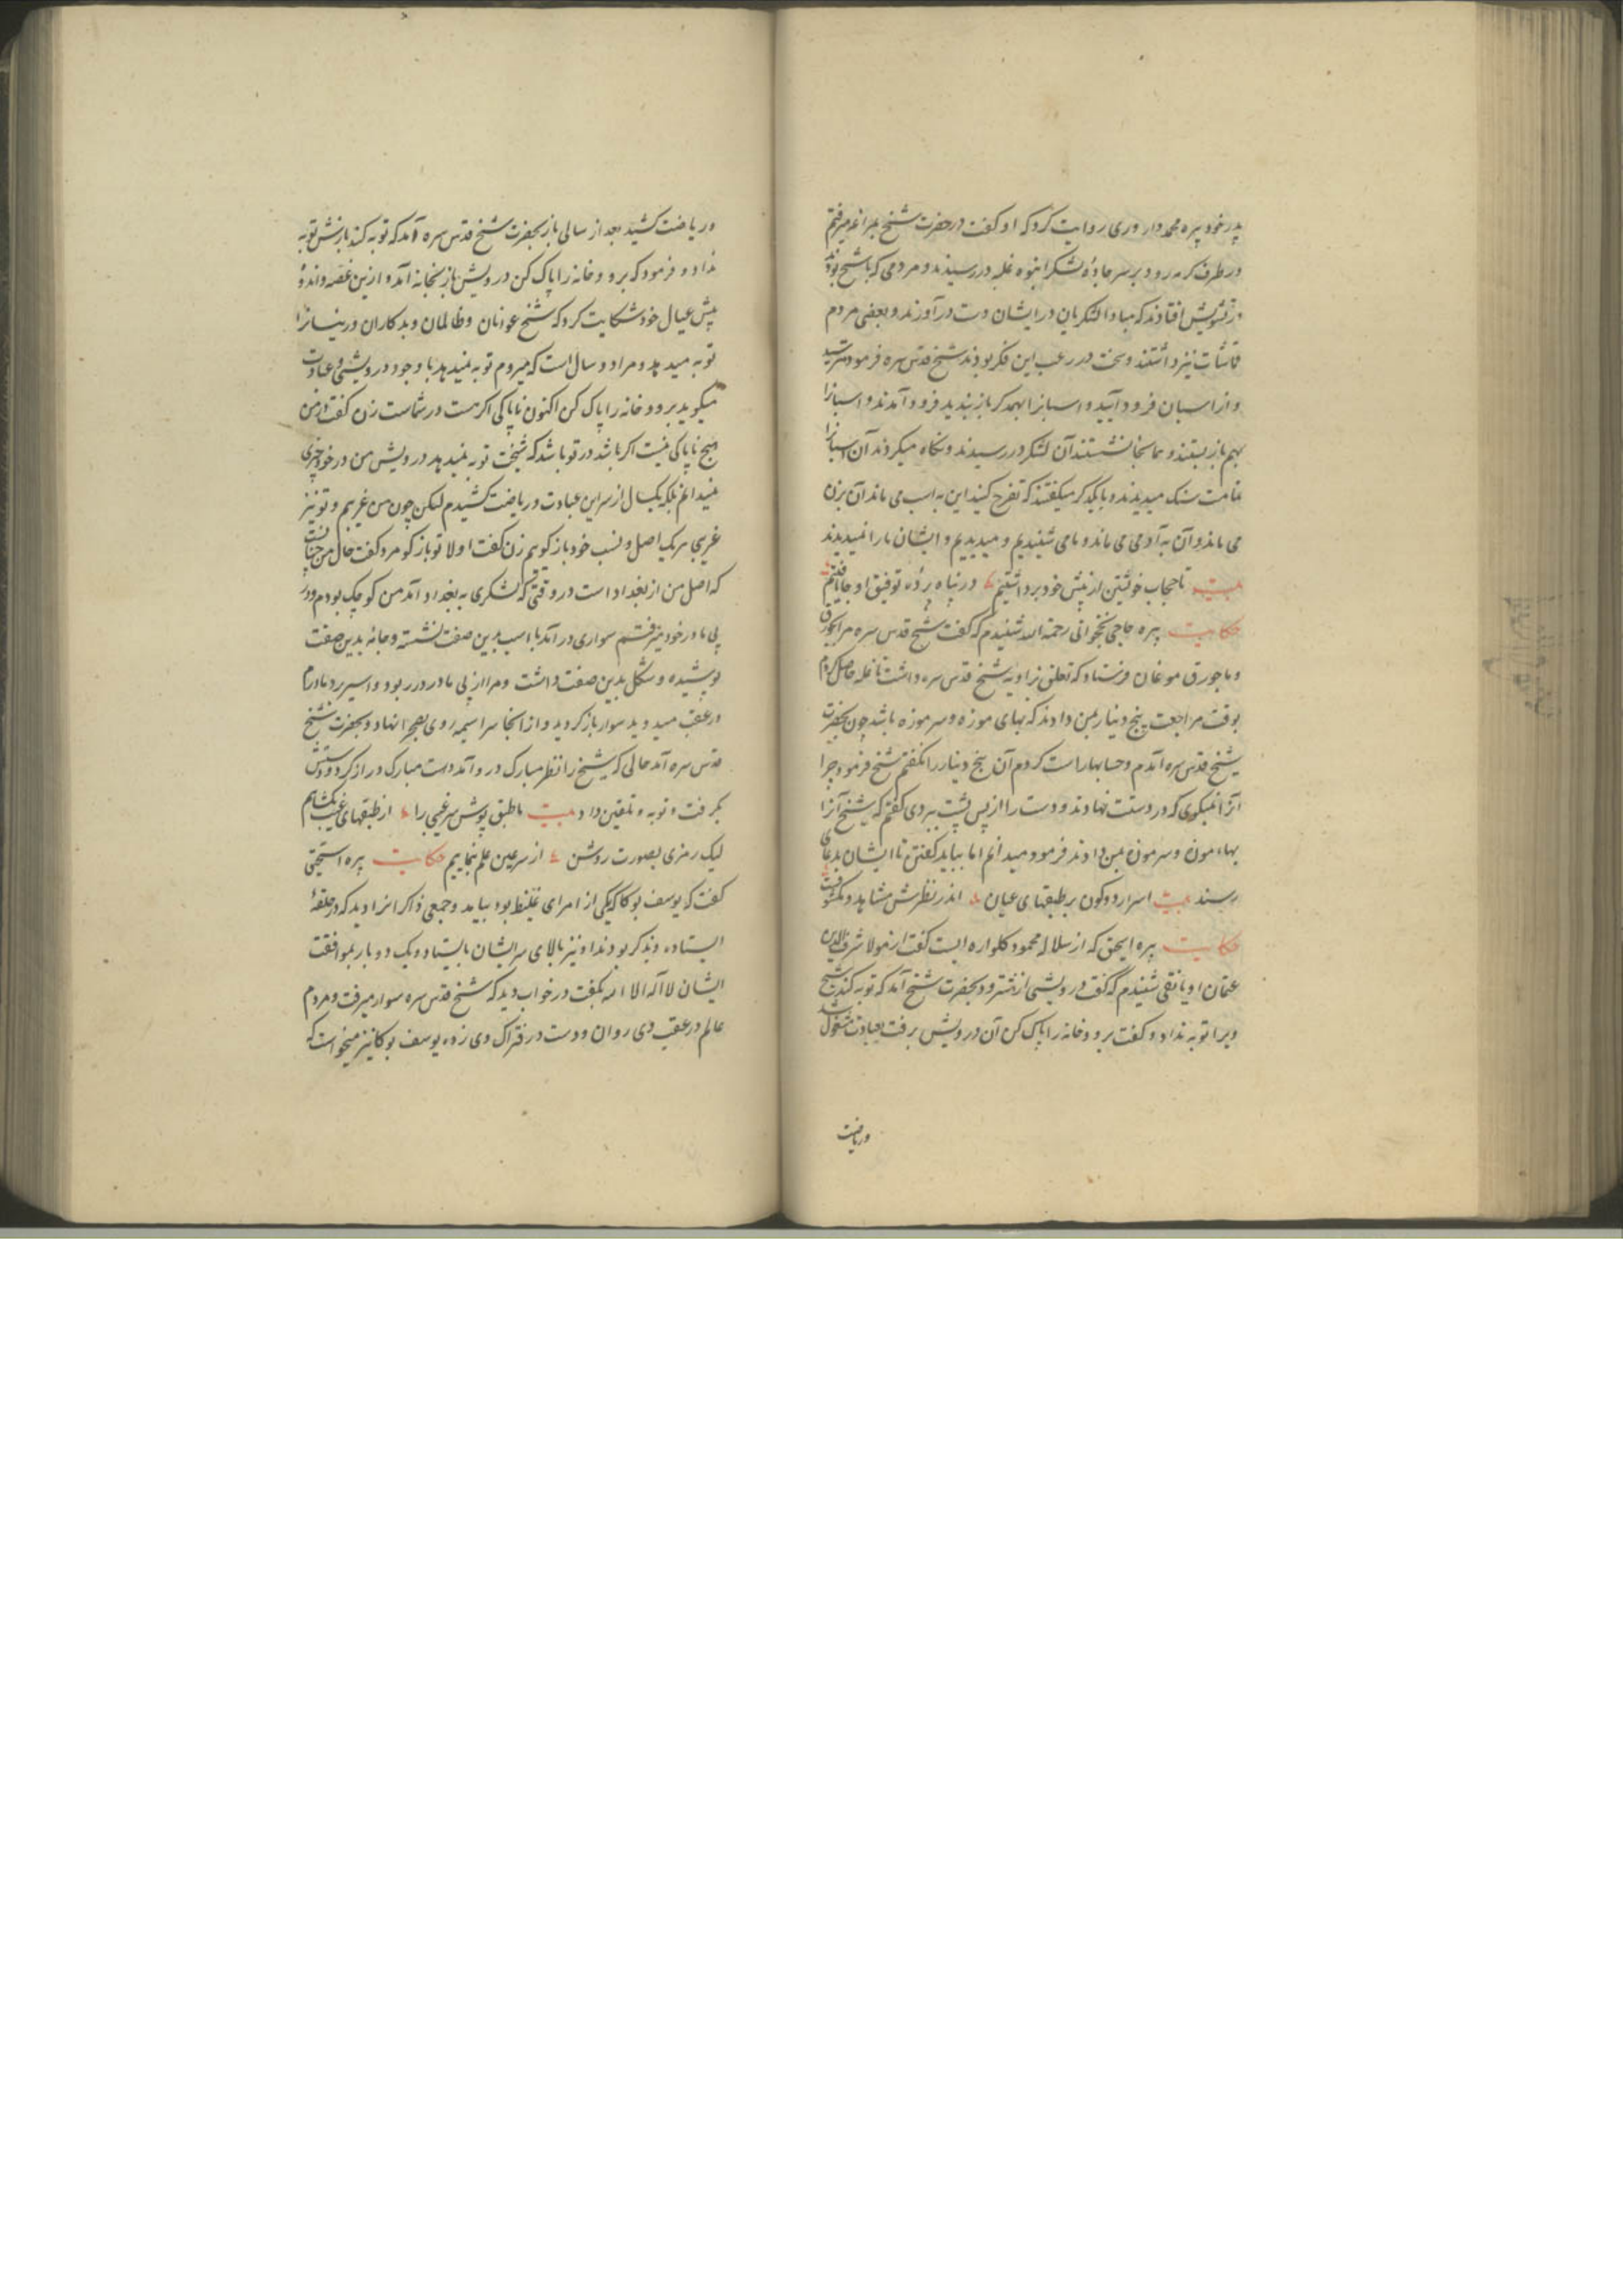 پدر خود پیره محمد دار وری روایت کرد که او گفت در حضرت شیخ بمراغه میرفتم
در طرف کرمه رود بر سر جاده لشکر انبوه غلبه در رسیدند و مردمی که با شیخ بودند
در تشویش افتادند که مبادا لشکریان در ایشان دست درآورند و بعضی مردم
قماشات نیز داشتند و سخت در رعب این فکر بودند شیخ قدس سره فرمود مترسید
و از اسبان فرود آیید و اسبانرا بهمدکر باز بندید فرود آمدند و اسبانرا
بهم باز بستند و همانجا نشستند آن لشکر در رسیدند و نگاه میکردند آن اسبانرا
بمثابت سنک میدیدند و با یکدیگر میگفتند که تفرج کنید این به اسب می ماند آن بزن
می ماند و آن به آدمی می ماند و ما می شنیدیم و میدیدیم و ایشان ما را نمیدیدند
بیت تا حجاب خویشتن از پیش خود برداشتیم در پناه پرده توفیق او جا یافتیم
حکایت پیره حاجی نخجوانی رحمة الله شنیدم که گفت شیخ قدس سره مرا بجورق
و باجورق موغان فرستاد که تعلق بزاویه شیخ قدس سره داشت تا غله حاصل کردم
بوقت مراجعت پنج دینار بمن دادند که بهای موزه و سرموزه باشد چون بحضرت
شیخ قدس سره آمدم و حسابها راست کردم آن پنج دینار را نگفتم شیخ فرمود چرا
آنرا نمیگوی که در دستت نهادند و دست را از پس پشت ببردی گفتم که شیخ آنرا
بهاء موزه و سرموزه بمن دادند فرمود میدانم اما بباید گفتن تا ایشان بدعای
رسند بیت اسرار دو کون بر طبقهای عیان اندر نظرش مشاهد و مکشوفست
حکایت پیره اسحق که از سلاله محمود کلواره ایست گفت از مولا شرف الدین
عثمان اویانقی شنیدم که گفت درویشی از شترود بحضرت شیخ آمد که توبه کند شیخ
ویرا توبه نداد و گفت برو و خانه را پاک کن آن درویش برفت بعبادت مشغول شد
وریاضت
و ریاضت کشید بعد از سالی باز بحضرت شیخ قدس سره آمد که توبه کند بازش توبه
نداد و فرمود که برو و خانه را پاک کن درویش باز بخانه آمد و ازین غصه و اندوه
پیش عیال خود شکایت کرد که شیخ عوانان و ظالمان و بدکاران و رینسانرا
توبه میدهد و مرا دو سال است که میروم توبه نمیدهد با وجود درویشی و عبادت
میگوید برو و خانه را پاک کن اکنون ناپاکی اگر هست در شماست زن گفت در من
هیچ ناپاکی نیست اگر باشد در تو باشد که شیخت توبه نمیدهد درویش من در خود چیزی
نمیدانم بلکه یکسال از سر این عبادت و ریاضت کشیدم لیکن چون من غریبم و تو نیز
غریبی هر یک اصل و نسب خود باز گویم زن گفت اولا تو باز گو مرد گفت حال من چنانست
که اصل من از بغداد است در وقتی که لشکری به بغداد آمد من کوچک بودم و در
پی مادر خود میرفتم سواری درآمد با اسب بدین صفت نشسته و جامه بدین صفت
پوشیده و شکل بدین صفت داشت و مرا از پی مادر در ربود و اسیر برد مادرم
در عقب میدوید سوار باز گردید و از آنجا سراسیمه روی بصحرا نهاد و بحضرت شیخ
قدس سره آمد حالی که شیخ را نظر مبارک در و آمد دست مبارک دراز کرد و دستش
بگرفت و توبه و تلقین داد بیت ما طبق پوش سر غیبی را از طبقهای غیب بگشاییم
لیک رمزی بصورت روشن از سر عین علم نماییم حکایت پیره اسحق
گفت که یوسف بوکا که یکی از امرای غلیظ بود بیامد و جمعی ذاکرانرا دید که در حلقه
ایستاده و بذکر بودند او نیز بالای سر ایشان بایستاد و یک دو بار بموافقت
ایشان لا اله الا الله بگفت در خواب دید که شیخ قدس سره سوار میرفت و مردم
عالم در عقب وی روان و دست در فتراک وی زده یوسف بوکا نیز میخواست که